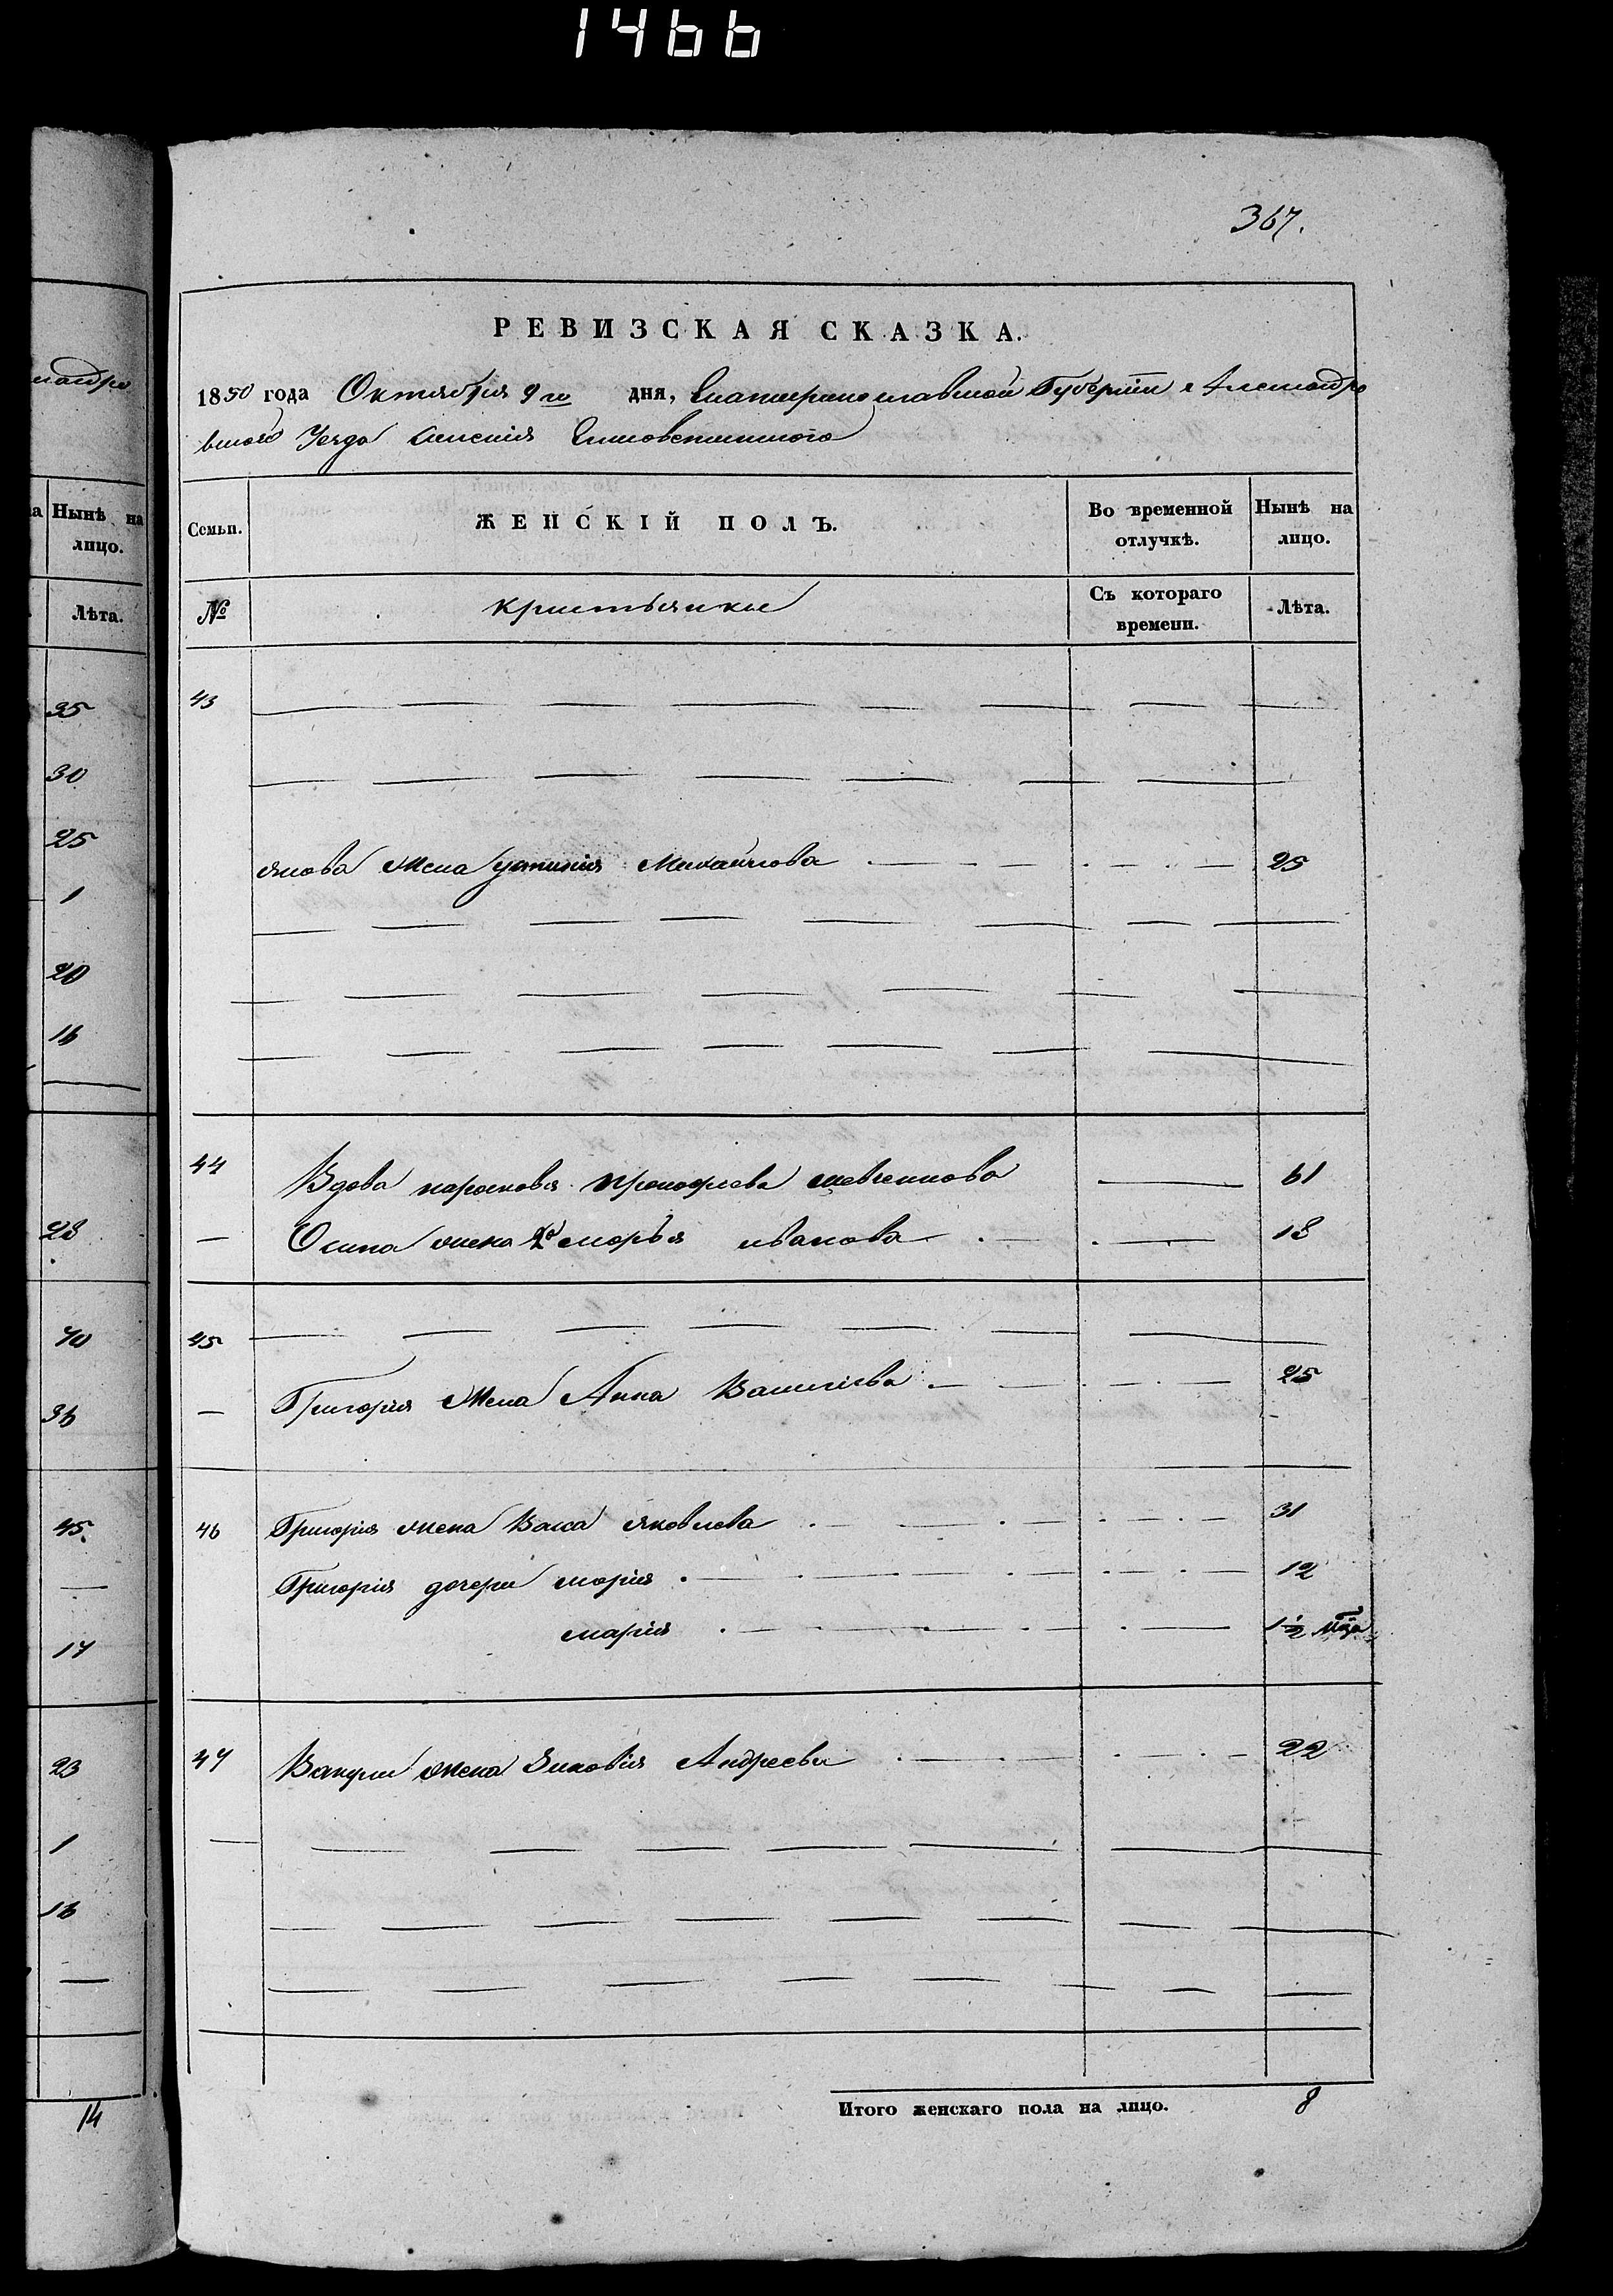 1466
367.
РЕВИЗСКАЯ СКАЗКА.
1850 года Октября 9го дня, Екатеринославской Губерніи Александро
вскаго Уезда имения
Семьи.
ЖЕНСКІЙ ПОЛЪ.
Во временной отлучкѣ.
Нынѣ на лицо.
№
кристьянки
Съ котораго времени.
Лѣта.
43
якова жена устинія Михайлова 25
44 Вдова парасковя прокофиева шевченкова 61
Осипа жена 2я марья иванова 18
45
Григорія жена Анна Василіева 25
46 Григорія жена Васса яковлева 31
Григорія дочери марія 12
марія 1½ мца
47 Вакулы жена Зиновія Андреева 22
Итого женскаго пола на лицо. 8
мандро
а Нынѣ на
лицо.
Лѣта.
35
30
25
1
20
16
28
40
36
45
17
23
1
16
14